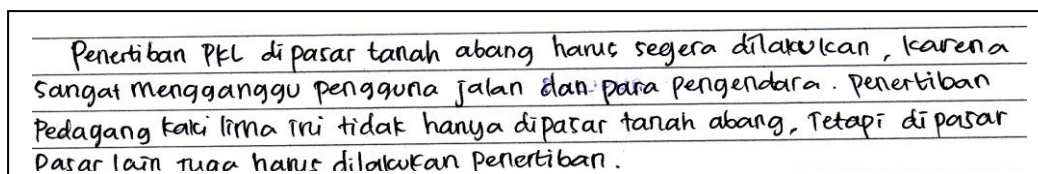 Penertiban PKL di pasar tanah abang harus segera dilakukan, karena
sangat mengganggu pengguna jalan dan para pengendara. Penertiban
pedagang kaki lima ini tidak hanya dipasar tanah abang, Tetapi di pasar
pasar lain juga harus dilakukan penertiban.